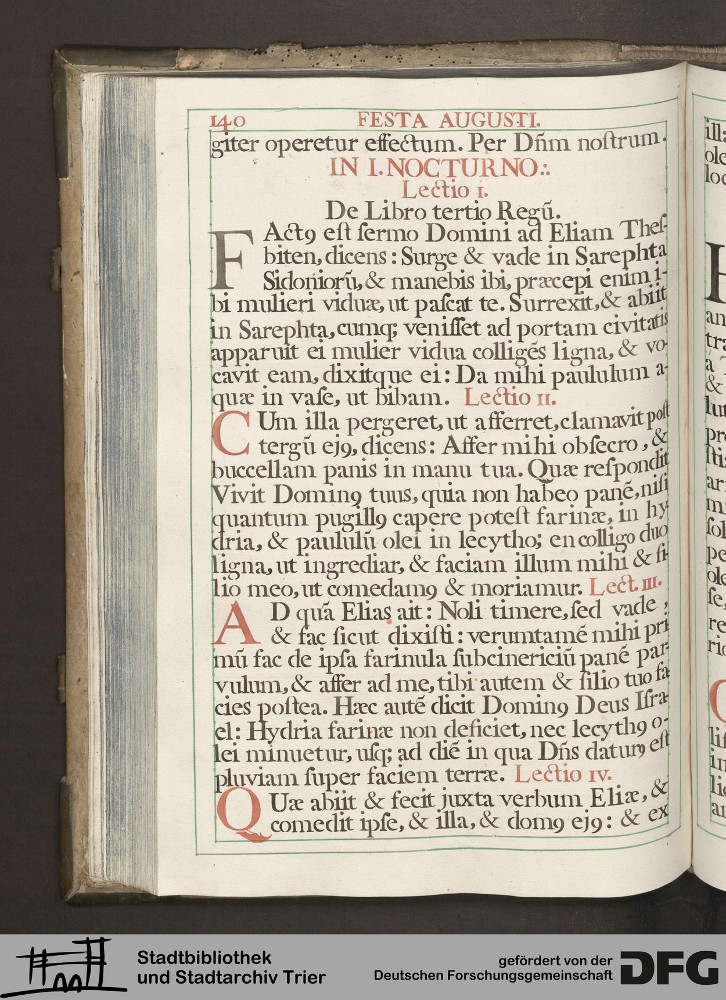 140 FESTA AUGUSTI.
giter operetur effectum. Per Dñm nostrum.
IN I. NOCTURNO.
Lectio I.
De Libro tertio Regũ.
FActꝰ est sermo Domini ad Eliam Thes-
biten, dicens: Surge & vade in Sarephta
Sidoniorũ, & manebis ibi, præcepi enim i-
bi mulieri viduæ, ut pascat te. Surrexit, & abiit
in Sarephta, cumq; venisset ad portam civitatis
apparuit ei mulier vidua colligẽs ligna, & vo-
cavit eam, dixitque ei: Da mihi paululum a-
quæ in vase, ut bibam. Lectio II.
CUm illa pergeret, ut afferret, clamavit post
tergũ ejꝰ, dicens: Affer mihi obsecro, &
buccellam panis in manu tua. Quæ respondit
Vivit Dominꝰ tuus, quia non habeo panẽ, nisi
quantum pugillꝰ capere potest farinæ, in hy-
dria, & paululũ olei in lecytho; en colligo duo
ligna, ut ingrediar, & faciam illum mihi & fi-
lio meo, ut comedamꝰ & moriamur. Lect. III.
AD quã Elias ait: Noli timere, sed vade,
& fac sicut dixisti: verumtamẽ mihi pri
mũ fac de ipsa farinula subcinericiũ panẽ par-
vulum, & affer ad me, tibi autem & filio tuo fa-
cies postea. Hæc autẽ dicit Dominꝰ Deus Isra-
el: Hydria farinæ non deficiet, nec lecythꝰ o-
lei minuetur, usq; ad diẽ in qua Dñs daturꝰ est
pluviam super faciem terræ. Lectio IV.
QUæ abiit & fecit juxta verbum Eliæ, &
comedit ipse, & illa, & domꝰ ejꝰ: & ex
Stadtbibliothek
und Stadtarchiv Trier
gefördert von der
Deutschen Forschungsgemeinschaft
DFG